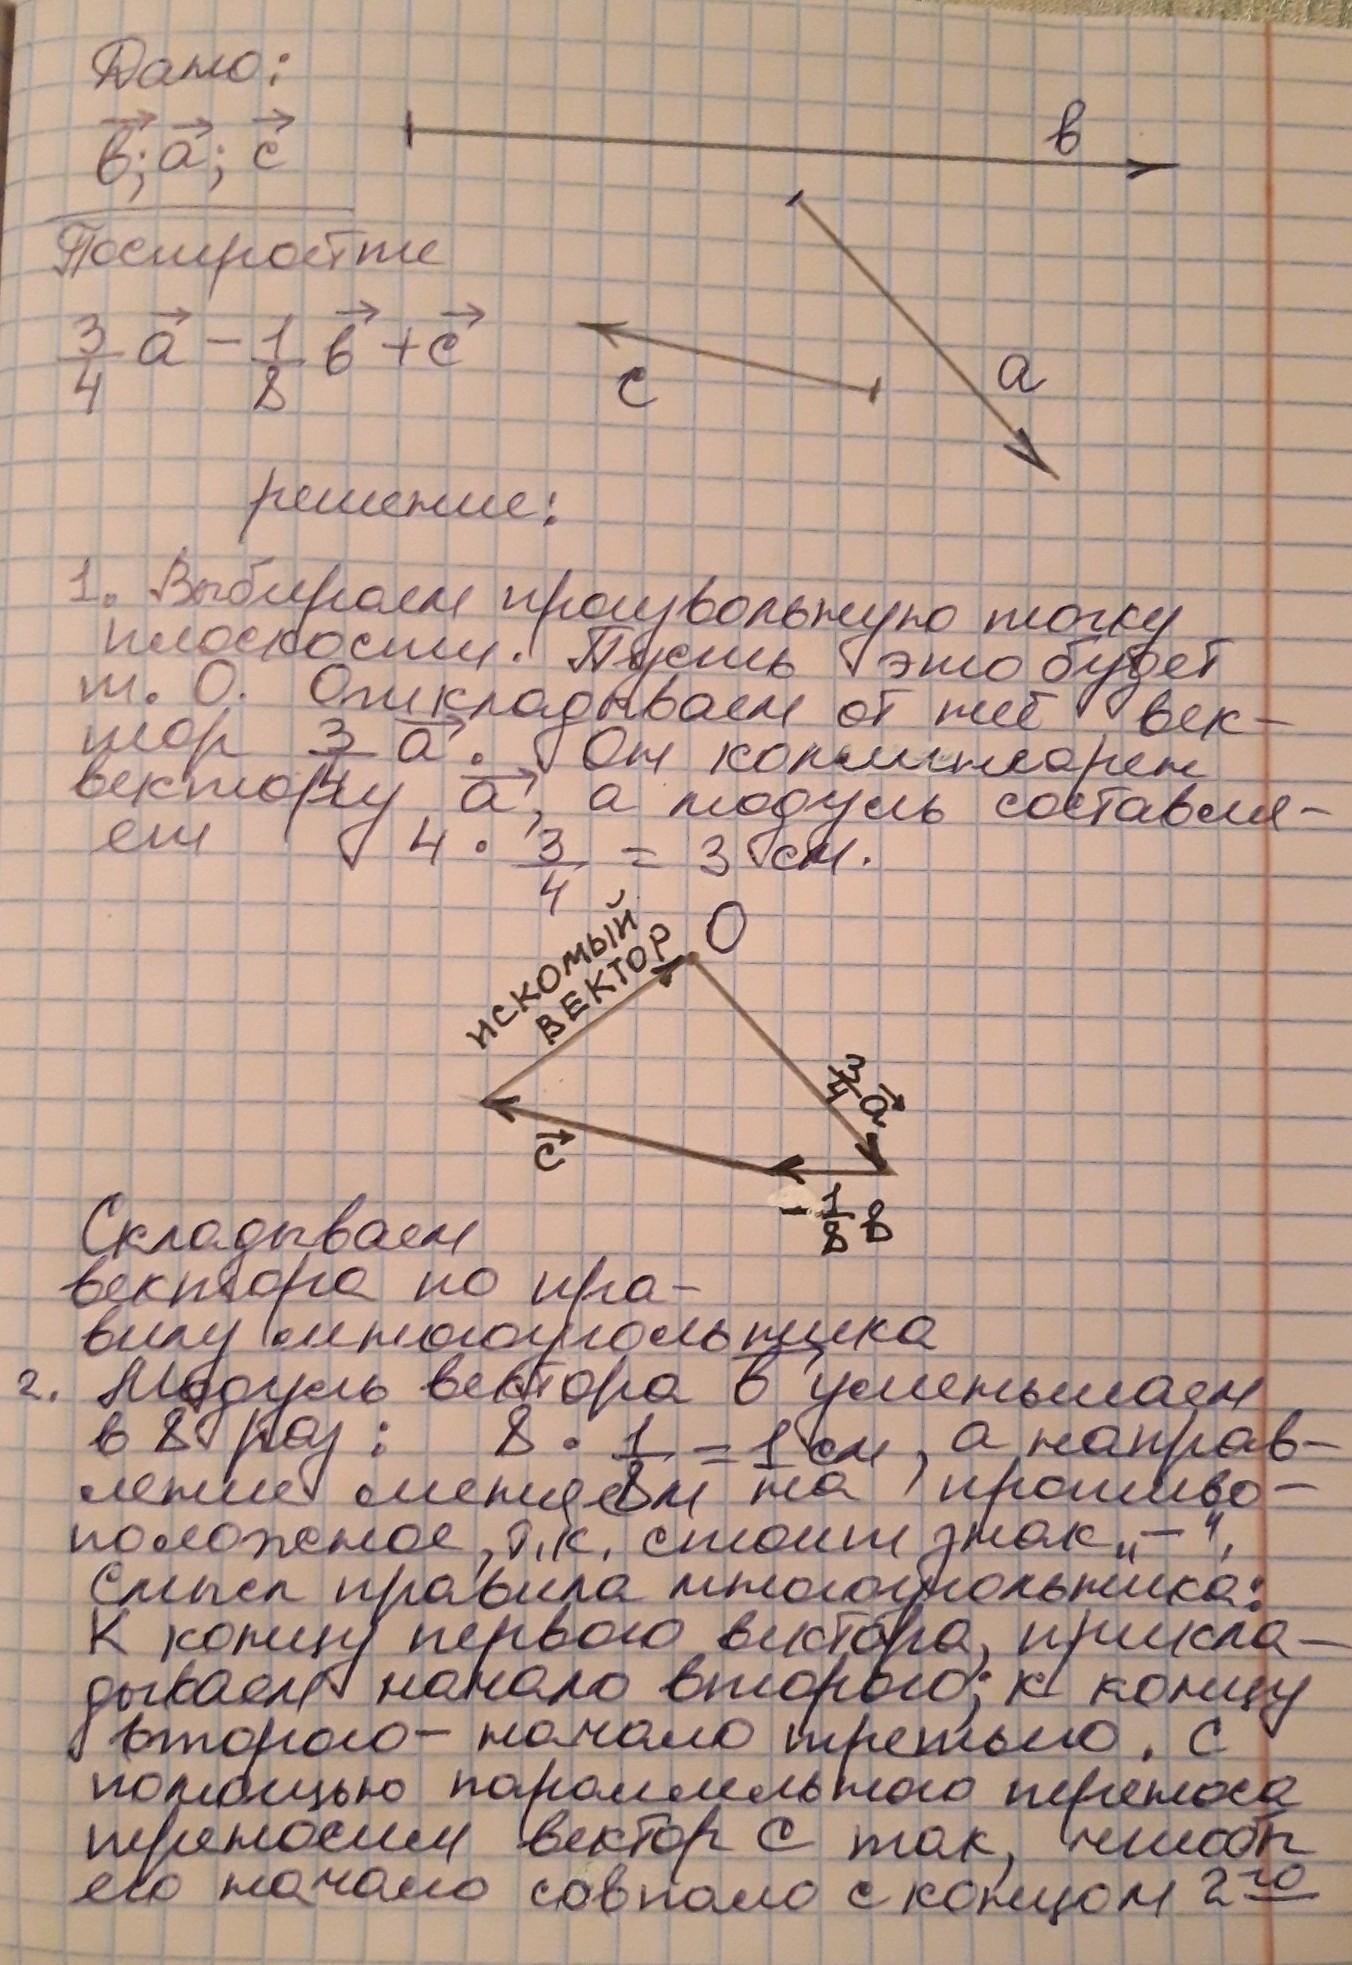 Дано:
b; a; c
b
Построить
a
3/4 a - 1/8 b + c
c
решение:
1. Выбираем произвольную точку
плоскости. Пусть это будет
т. О. Откладываем от неё век-
тор 3/4 a. Он коллинеарен
вектору a, а модуль составля-
ет 4 · 3/4 = 3 см.
О
ИСКОМЫЙ
ВЕКТОР
3/4 a
c
- 1/8 b
Складываем
вектора по пра-
вилу многоугольника
2. Модуль вектора b уменьшаем
в 8 раз: 8 · 1/8 = 1 см, а направ-
ление меняем на противо-
положное, т.к. стоит знак „-“.
Смысл правила многоугольника:
К концу первого вектора, прикла-
дываем начало второго; к концу
второго - начало третьего. С
помощью параллельного переноса
переносим вектор c так, чтобы
его начало совпало с концом 2го